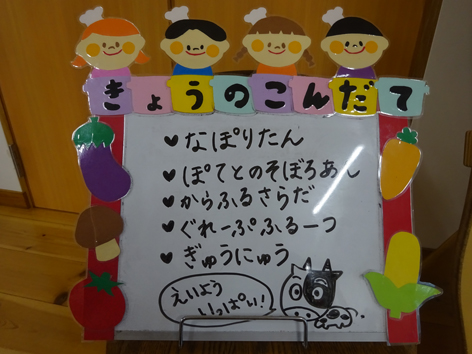 きょうのこんだて
♥なぽりたん
♥ぽてとのそぼろあん
♥からふるさらだ
♥ぐれーぷふるーつ
♥ぎゅうにゅう
えいよう
いっぱい!